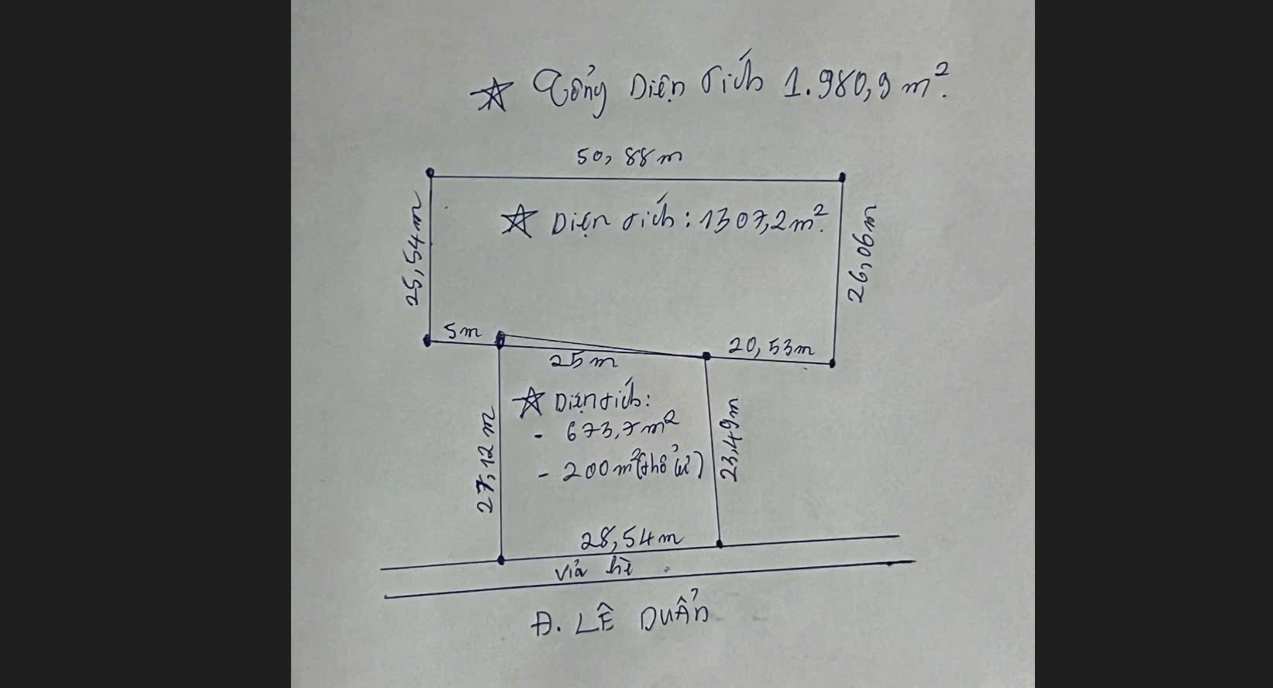 ☆ Tổng Diện tích 1.980,9 m².
50,88m
☆ Diện tích: 1307,2m².
25,54m
26,06m
5m
25m
20,53m
☆ Diện tích:
- 673,7m²
- 200m²(thổ cư)
27,12m
23,49m
28,54m
vỉa hè
Đ. LÊ DUẨN